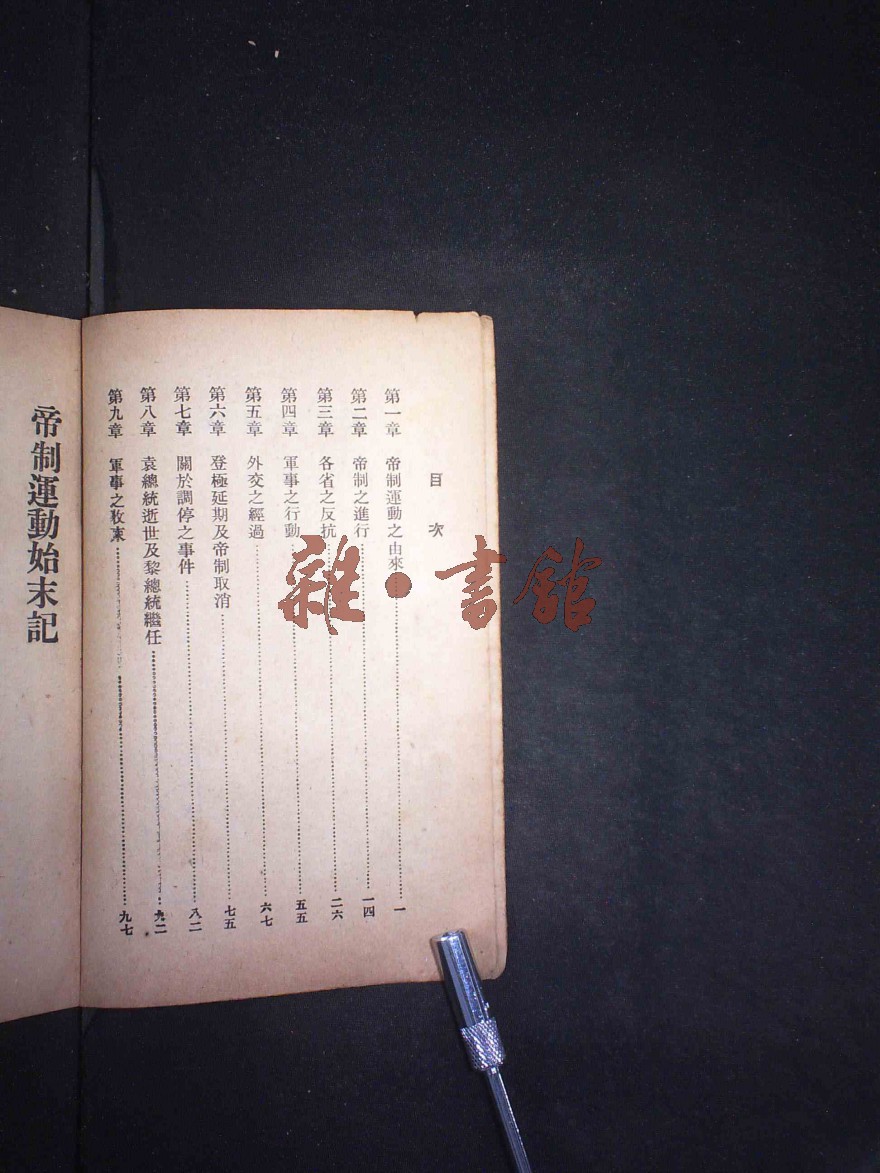 目次
第一章 帝制運動之由來 一
第二章 帝制之進行 一四
第三章 各省之反抗 二六
第四章 軍事之行動 五五
第五章 外交之經過 六七
第六章 登極延期及帝制取消 七五
第七章 關於調停之事件 八二
第八章 袁總統逝世及黎總統繼任 九二
第九章 軍事之收束 九七
帝制運動始末記
雜·書館